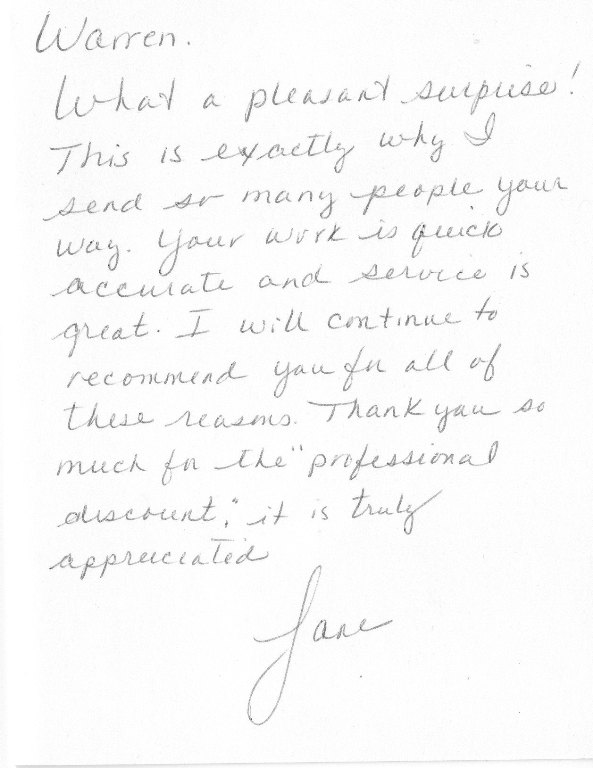 Warren.
What a pleasant surprise!
This is exactly why I
send so many people your
way. Your work is quick
accurate and service is
great. I will continue to
recommend you for all of
these reasons. Thank you so
much for the "professional
discount," it is truly
appreciated
Jane